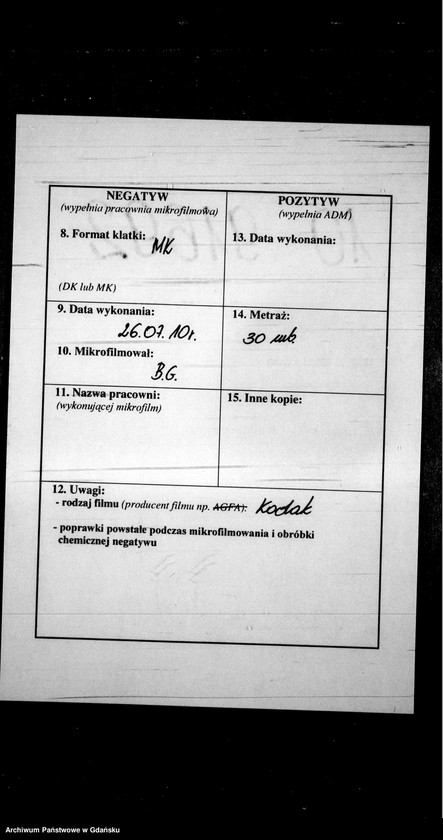 NEGATYW
(wypełnia pracownia mikrofilmowa)
8. Format klatki:
MK
(DK lub MK)
9. Data wykonania:
26.07.10r.
10. Mikrofilmował:
B.G.
11. Nazwa pracowni:
(wykonującej mikrofilm)
POZYTYW
(wypełnia ADM)
13. Data wykonania:
14. Metraż:
30 mb
15. Inne kopie:
12. Uwagi:
- rodzaj filmu (producent filmu np. AGFA). Kodak
- poprawki powstałe podczas mikrofilmowania i obróbki
chemicznej negatywu
Archiwum Państwowe w Gdańsku